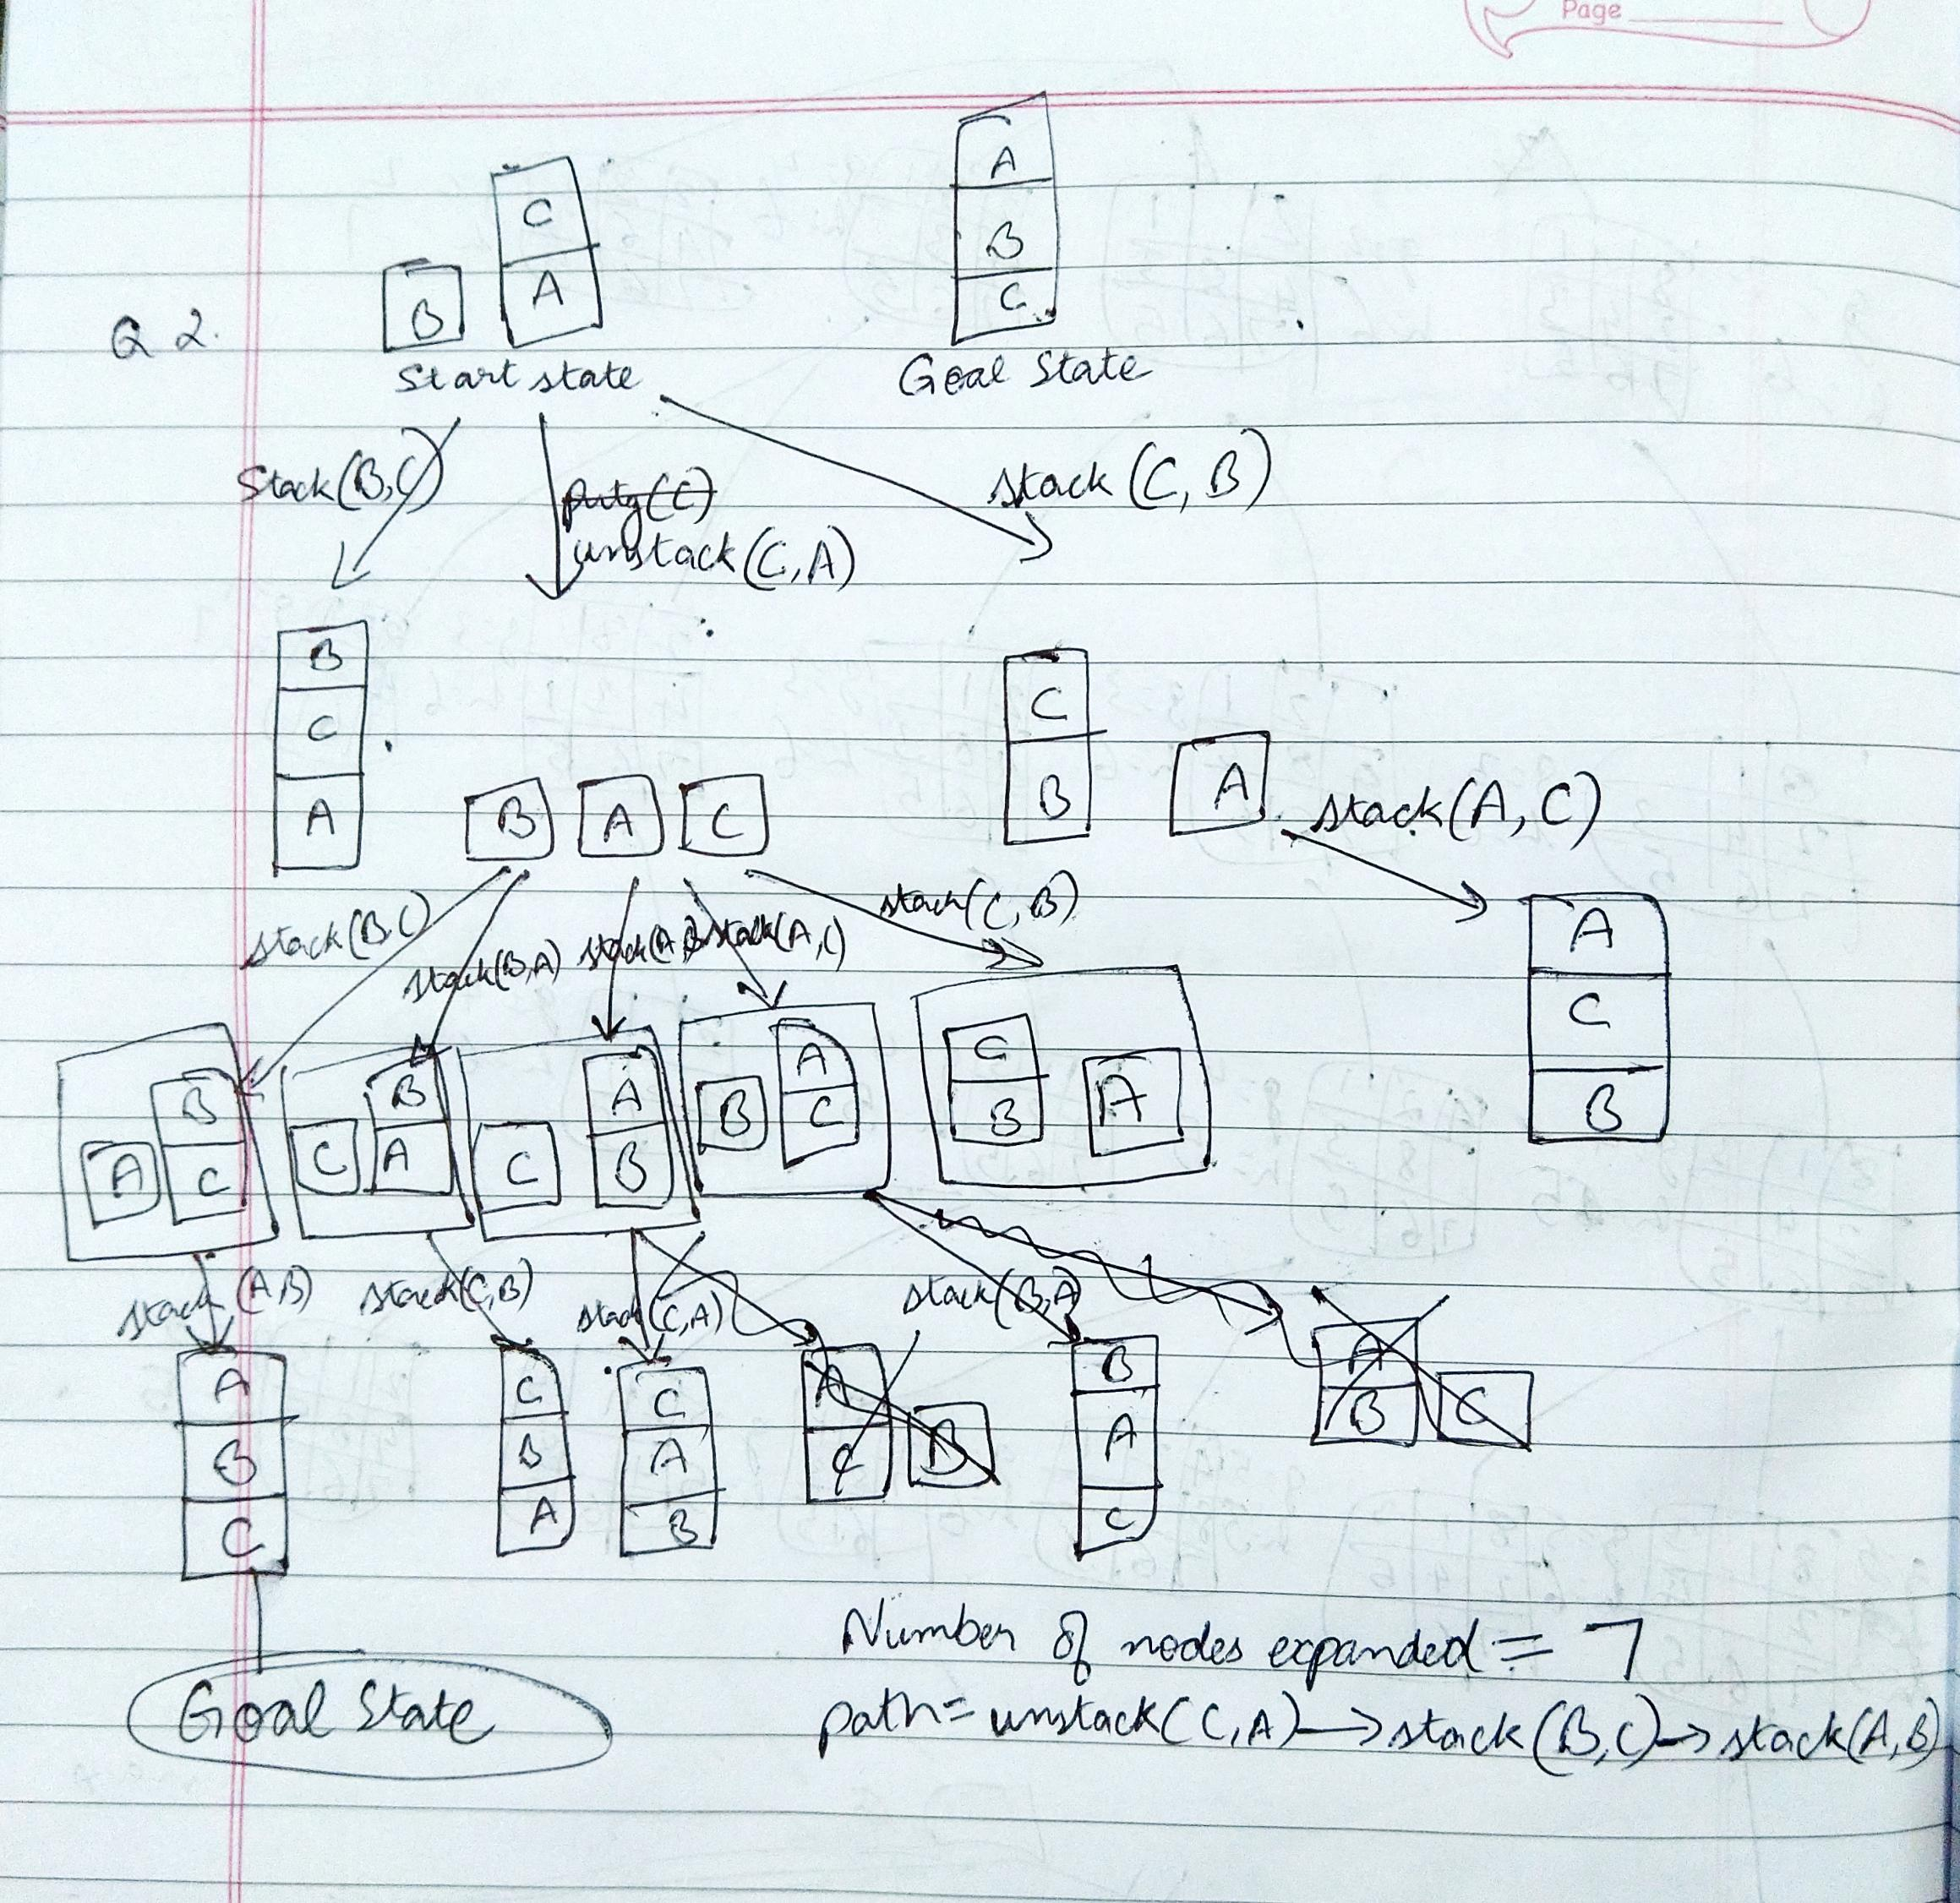 Page
C
A
A
B
B
C
Q 2.
Start state
Goal State
Stack(B,C)
putg(C)
unstack(C,A)
stack(C,B)
B
C
A
B
A
C
C
B
A
stack(A,C)
stack(B,C)
stack(B,A)
stack(A,B)
stack(A,C)
stack(C,B)
A
C
B
A
B
C
C
B
A
C
A
B
B
A
C
C
B
A
stack(A,B)
stack(C,B)
stack(C,A)
stack(B,A)
A
B
C
C
B
A
C
A
B
A
C
B
B
A
C
A
B
C
Goal State
Number of nodes expanded = 7
path= unstack(C,A)→stack(B,C)→stack(A,B)